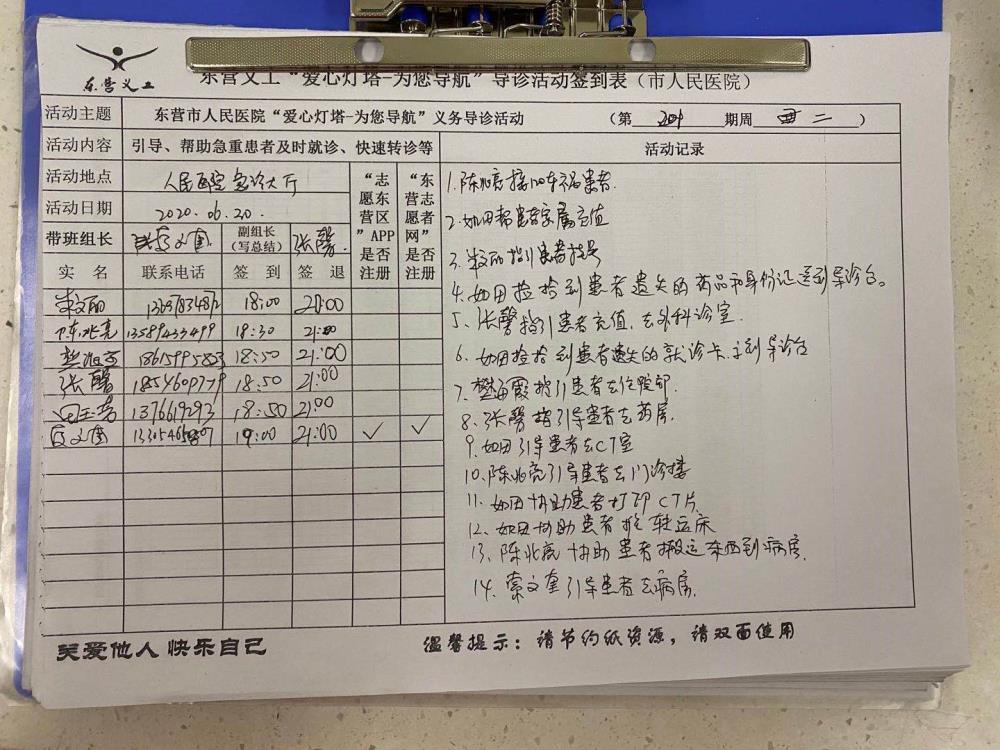 东营义工
东营义工“爱心灯塔-为您导航”导诊活动签到表（市人民医院）
活动主题 东营市人民医院“爱心灯塔-为您导航”义务导诊活动 （第 期周 二 ）
活动内容 引导、帮助急重患者及时就诊、快速转诊等 活动记录
活动地点 人民医院急诊大厅
活动日期 2020.06.20.
带班组长 副组长（写总结） 张馨
“志愿东营区”APP是否注册
“东营志愿者网”是否注册
实名 联系电话 签到 签退
18:00 21:00
陈兆亮 13589433499 18:30 21:00
18:50 21:00
张馨 18:50 21:00
18:50 21:00
19:00 21:00 ✓ ✓
1.陈兆亮接120车祸患者.
2.如田帮患者家属充值
3. 指引患者挂号
4.如田捡拾到患者遗失的药品和身份证送到导诊台。
5.张馨指引患者充值,去外科诊室.
6.如田捡拾到患者遗失的就诊卡,送到导诊台
7.樊海霞指引患者去住院部.
8.张馨指引导患者去药房.
9.如田引导患者去CT室
10.陈兆亮引导患者去门诊楼
11.如田协助患者打印CT片
12.如田协助患者推转运床
13.陈兆亮协助患者搬运东西到病房.
14. 文奎引导患者去病房.
关爱他人 快乐自己
温馨提示：请节约纸资源，请双面使用